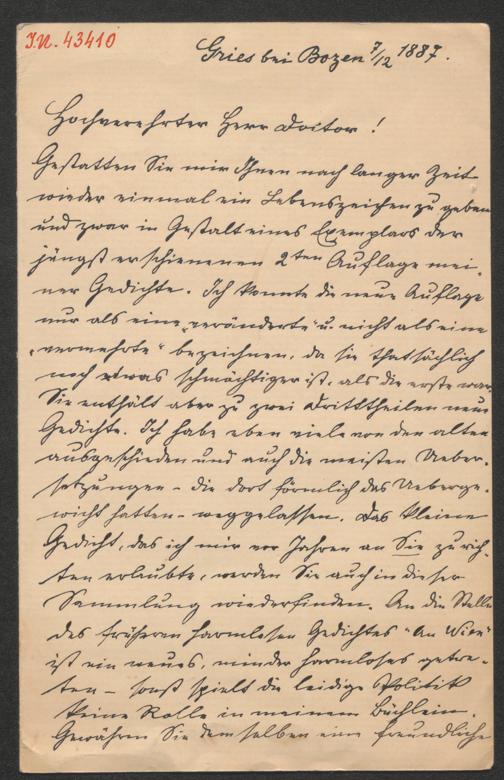 J.N. 43410
Gries bei Bozen 7/12 1887.
Hochverehrter Herr Doctor!
Gestatten Sie mir Ihnen nach langer Zeit
wieder einmal ein Lebenszeichen zu geben
und zwar in Gestalt eines Exemplars der
jüngst erschienenen 2ten Auflage mei-
ner Gedichte. Ich konnte die neue Auflage
nur als eine „veränderte" u. nicht als eine
„vermehrte" bezeichnen, da sie thatsächlich
noch etwas schmächtiger ist, als die erste war.
Sie enthält aber zu zwei Dritttheilen neue
Gedichte. Ich habe eben viele von den alten
ausgeschieden und auch die meisten Ueber-
setzungen – die dort förmlich das Ueberge-
wicht hatten – weggelassen. Das kleine
Gedicht, das ich mir vor Jahren an Sie zu rich-
ten erlaubte, werden Sie auch in dieser
Sammlung wiederfinden. An die Stelle
des früheren harmlosen Gedichtes „An Wien"
ist ein neues, minder harmloses getre-
ten – sonst spielt die leidige Politik
keine Rolle in meinem Büchlein.
Gewähren Sie demselben eine freundliche